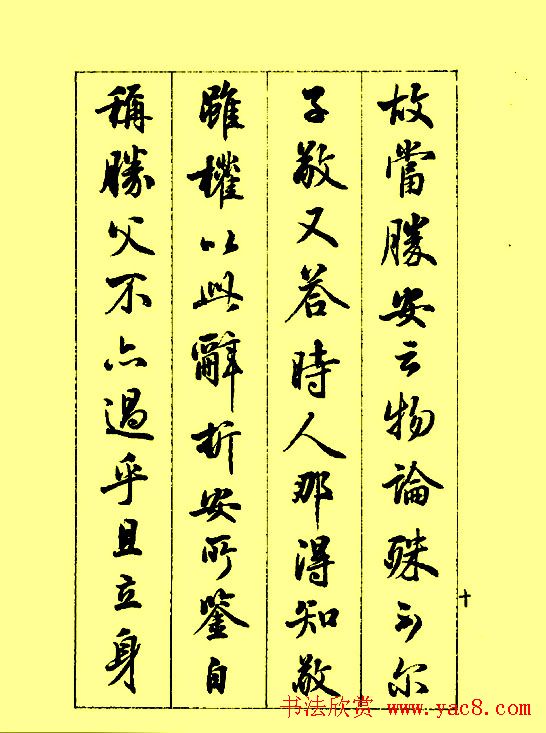 故當勝安云物論殊不尔
子敬又荅時人那得知敬
雖權以此辭折安所鑒自
稱勝父不亦過乎且立身
十
书法欣赏 www.yac8.com